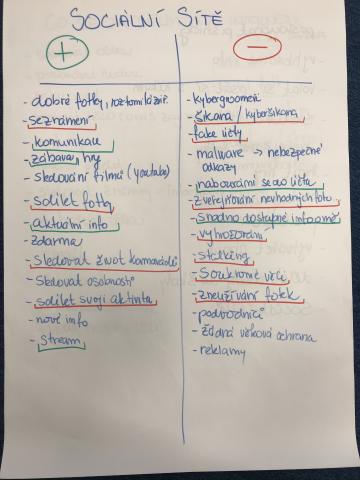 SOCIÁLNÍ SÍTĚ
+
−
- dobré fotky, roztomilá zvíř.
- seznámení
- komunikace
- zábava, hry
- sledování filmů (youtube)
- sdílet fotky
- aktuální info
- zdarma
- sledovat život kamarádů
- sledovat osobnosti
- sdílet svoji aktivitu
- nové info
- stream
- kybergrooming
- šikana / kyberšikana
- fake účty
- malware → nebezpečné
odkazy
- nabourávání se do účtu
- zveřejňování nevhodných foto.
- snadno dostupné info o mě
- vyhrožování
- stalking
- soukromé věci
- zneužívání fotek
- podvodníci
- žádná věková ochrana
- reklamy